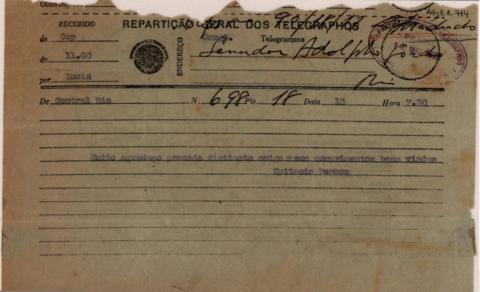 RECEBIDO
REPARTIÇÃO GERAL DOS TELEGRAPHOS
de Cop
ás 11.50
por Luzia
ENDEREÇO
Telegramma
Senador Adolpho Gordo
Rio
De Central Rio N. 698 Pls 18 Data 13 Hora 7.30
Muito agradeço presado distincto amigo seus comprimentos boas vindas
Epitacio Pessoa